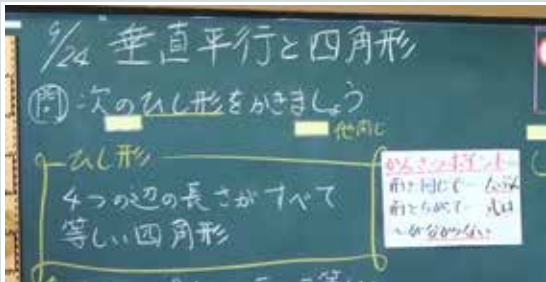 9/24 垂直平行と四角形
問 次のひし形をかきましょう
他同じ
ひし形
4つの辺の長さがすべて
等しい四角形
かんさつポイント
前と同じで
前とちがって
が分からない